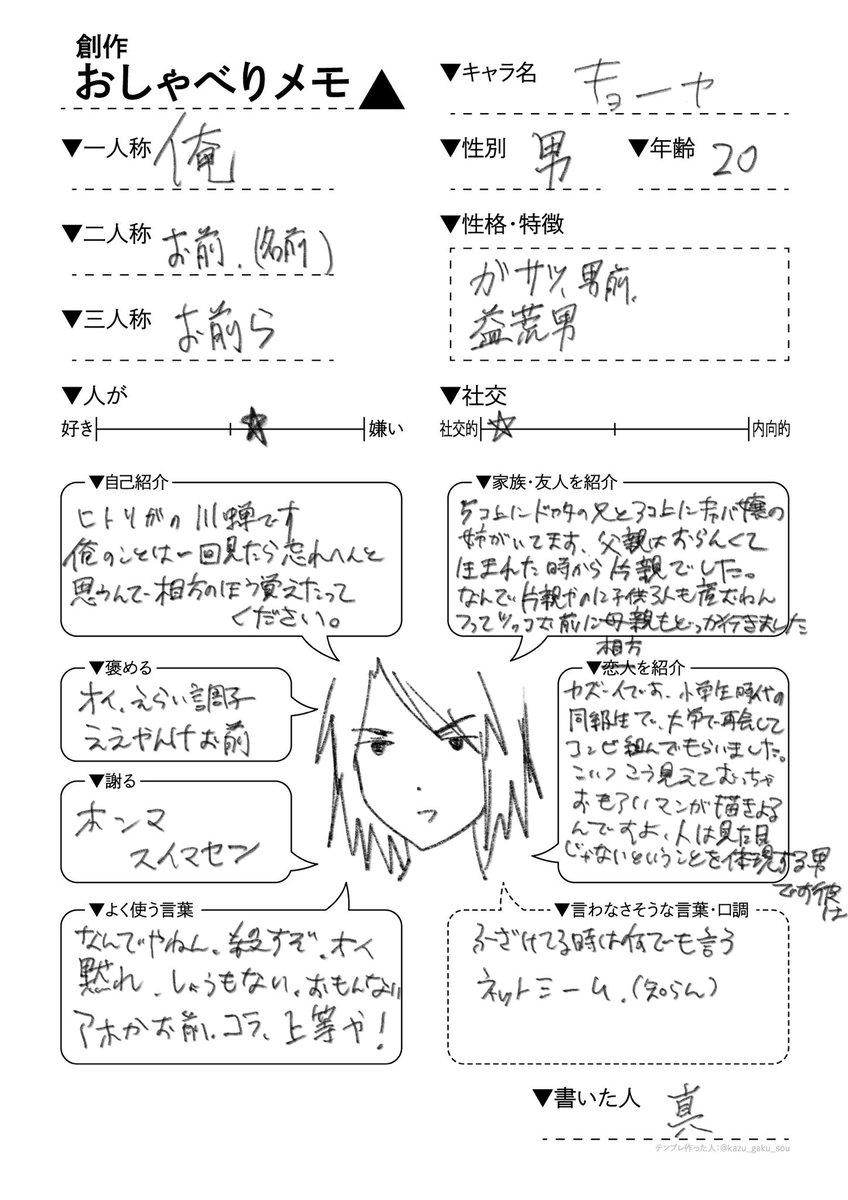 創作
おしゃべりメモ
▼キャラ名 キョーヤ
▼一人称 俺
▼性別 男
▼年齢 20
▼二人称 お前、(名前)
▼三人称 お前ら
▼性格・特徴
ガサツ、男前、
益荒男
▼人が
好き 嫌い
▼社交
社交的 内向的
▼自己紹介
ヒトリガの川蝉です
俺のことは一回見たら忘れへんと
思うんで相方のほう覚えたって
ください。
▼家族・友人を紹介
5コ上にドカタの兄と3コ上にキャバ嬢の
姉がいてます、父親はおらんくて
生まれた時から片親でした。
なんで片親やのに子供3人も産むねん
つってツッコむ前に母親もどっか行きました
▼褒める
オイ、えらい調子
ええやんけお前
▼謝る
ホンマ
スイマセン
相方
▼恋人を紹介
カズーイです、小学生時代の
同級生で、大学で再会して
コンビ組んでもらいました。
こいつこう見えてむっちゃ
おもろいマンガ描きよる
んですよ、人は見た目
じゃないということを体現する男
です彼は
▼よく使う言葉
なんでやねん、殺すぞ、オイ
黙れ、しょうもない、おもんない
アホかお前、コラ、上等や!
▼言わなさそうな言葉・口調
ふざけてる時は何でも言う
ネットミーム、(知らん)
▼書いた人 真
テンプレ作った人:@kazu_gaku_sou